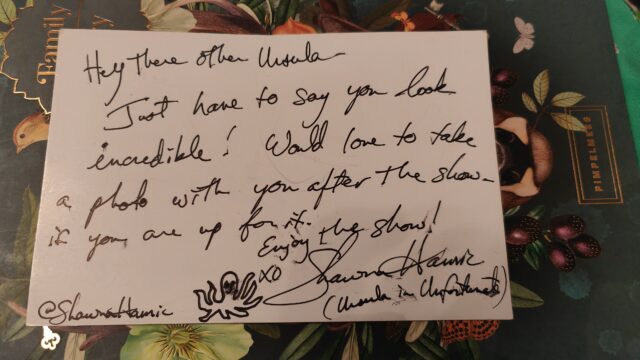 Hey there other Ursula-
Just have to say you look
incredible! Would love to take
a photo with you after the show-
if you are up for it.
Enjoy the show!
XO Shawna Hamic
(Ursula in Unfortunate)
@ShawnaHamic
Family
PIMPELMESS